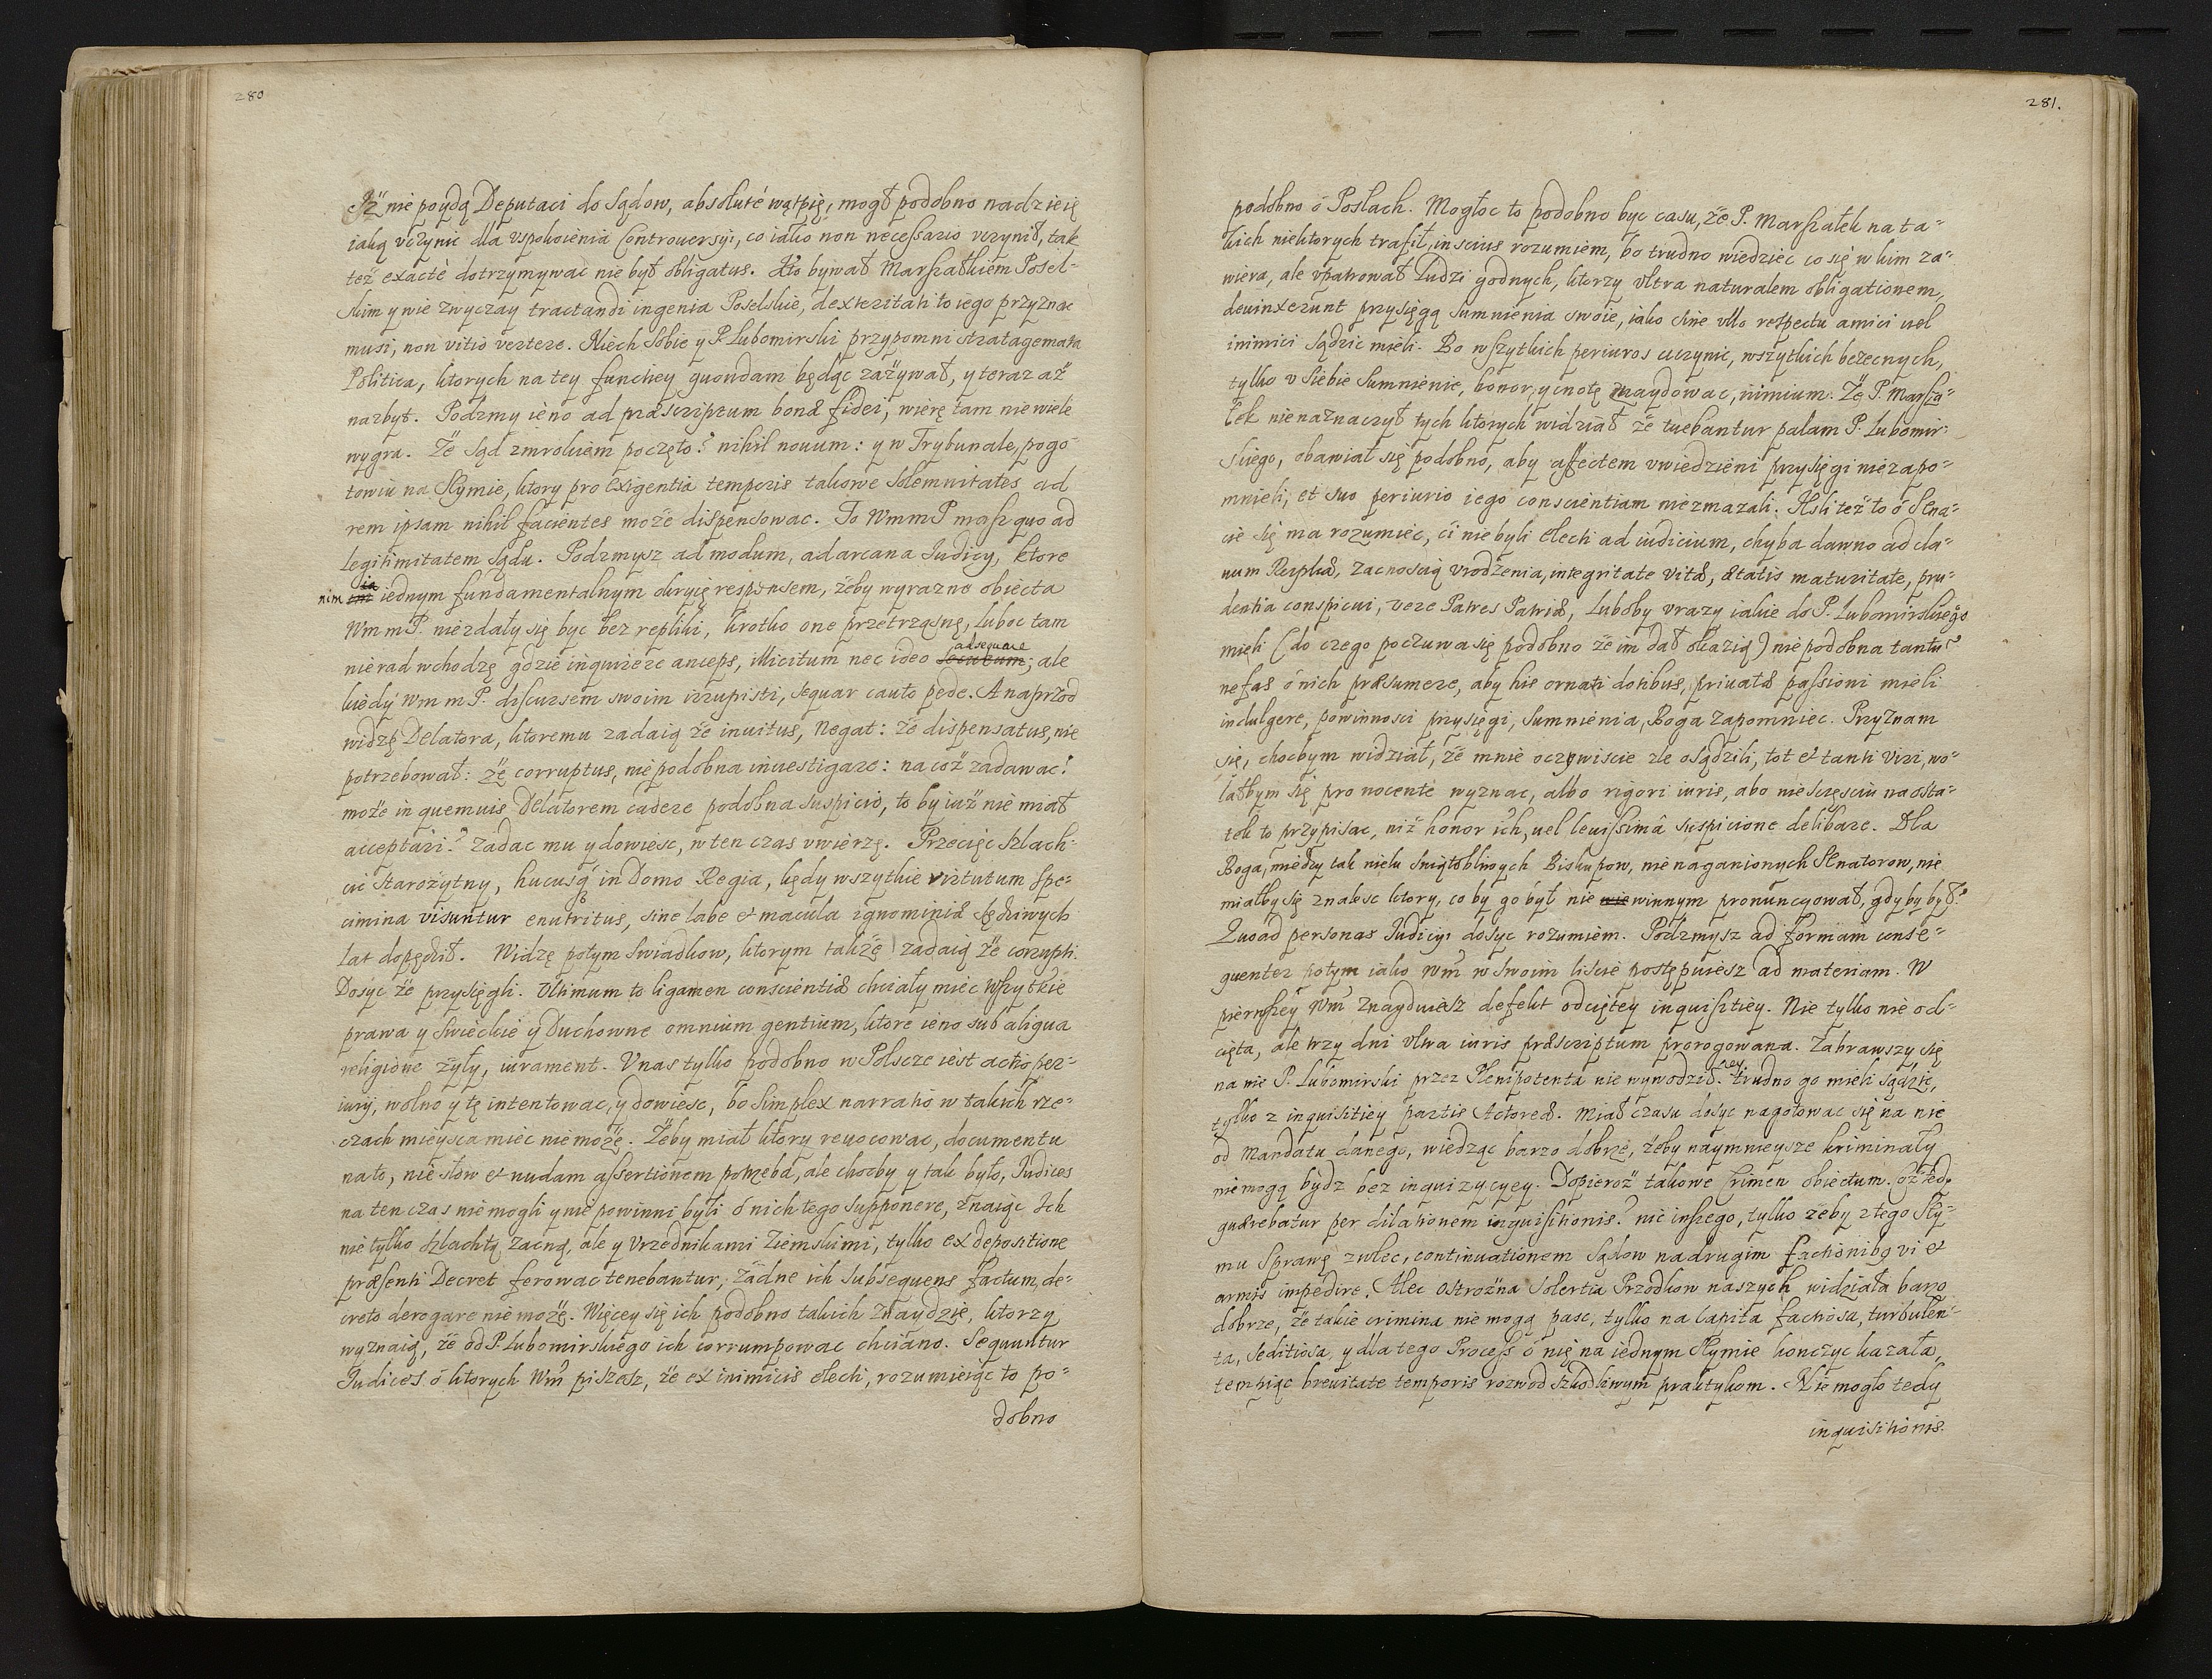 280
Iż nie poydą Deputaci do Sądow, absoluté wątpię, mogł podobno nadzieię
iaką vczynic dla vspokoienia Controuersyi, co iako non necessario vczynił, tak
też exactè dotrzymywac nie był obligatus. Kto bywał Marszałkiem Posel-
skim y wie zwyczay tractandi ingenia Poselskie, dexteritati to iego przyznac
musi, non vitio vertere. Niech sobie y P. Lubomirski przypomni stratagemata
Politica, ktorych na tey funckey quondam będąc zażywał, y teraz aż
nazbyt. Podzmy ieno ad præscriptum bonæ fidei, wierę tam nie wiele
wygra. Że Sąd zmrokiem poczęto? nihil nouum: y w Trybunale, pogo-
towiu na Seymie, ktory pro exigentia temporis takowe solemnitates ad
rem ipsam nihil facientes może dispensowac. To WmmP masz quo ad
legitimitatem Sądu. Podzmysz ad modum, ad arcana Iudicy, ktore
nim ia iednym fundamentalnym okryię responsem, żeby wyrazno obiecta
WmmP. niezdały się byc bez repliki, krotko one przetrząsnę, luboc tam
nierad wchodzę gdzie inquirere anceps, illicitum nec ideo adsequare; ale
kiedy WmmP. discursem swoim irrupisti, sequar cauto pede. A naprzod
widzę Delatora, ktoremu zadaią że inuitus, Negat: że dispensatus, nie
potrzebował: że corruptus, niepodobna inuestigare: na coż zadawac?
może in quemuis Delatorem cadere podobna suspicio, to by iuż nie miał
acceptari? zadac mu y dowiesc, w ten czas vwierzę. Przecięc Szlach-
cic Starożytny, hucusq in Domo Regia, kędy wszytkie virtutum spe-
cimina visuntur enutritus, sine labe et macula ignominiæ sędziwych
lat dopędził. Widzę potym Swiadkow, ktorym także zadaią że corrupti.
Dosyc że przysięgli. Vltimum to ligamen conscientiæ chciały miec wszytkie
prawa y Swieckie y Duchowne omnium gentium, ktore ieno sub aliqua
religione żyły, iurament. Vnas tylko podobno w Polscze iest actio per-
iurij, wolno y tę intentowac, y dowiesc, bo simplex narratio w takich rze-
czach mieysca miec niemoże. Żeby miał ktory reuocowac, documentu
nato, nie słow et nudam assertionem potrzeba, ale chocby y tak było, Iudices
na ten czas niemogli y nie powinni byli o nich tego supponere, znaiąc Ich
nie tylko szlachtą zacną, ale y Vrzednikami Ziemskimi, tylko ex depositione
præsenti Decret ferowac tenebantur, żadne ich subsequens factum, de-
creto derogare nie może. Więcey się ich podobno takich znaydzie, ktorzy
wyznaią, że od P. Lubomirskiego ich corrumpowac chciano. Sequuntur
Iudices o ktorych Wm piszesz, że ex inimicis electi, rozumieiąc to po-
dobno
281.
podobno o Posłach. Mogłoc to podobno byc casu, że P. Marszałek na ta-
kich niektorych trafił, inscius rozumiem, bo trudno wiedziec co się w kim za-
wiera, ale vpatrował ludzi godnych, ktorzy vltra naturalem obligationem,
deuinxerunt przysięgą sumnienia swoie, iako sine vllo respectu amici uel
inimici sądzic mieli. Bo wszytkich periuros vczynic, wszytkich bezecnych,
tylko v siebie sumnienie, honor, y cnotę znaydowac, nimium. Że P. Marsza-
łek nienaznaczył tych ktorych widział że tuebantur palam P. Lubomir-
skiego, obawiał się podobno, aby affectem vwiedzieni przysięgi niezapo-
mnieli, et suo periurio iego conscientiam niezmazali. Iesli też to o Sena-
cie się ma rozumiec, ci nie byli electi ad iudicium, chyba dawno ad cla-
uum Reipublæ, zacnoscią vrodzenia, integritate vitæ, ætatis maturitate, pru-
dentia conspicui, vere Patres Patriæ, luboby vrazy iakie do P. Lubomirskiego
mieli (do czego poczuwa się podobno że im dał okazią) nie podobna tantu
nefas o nich præsumere, aby his ornati dotibus, priuatæ passioni mieli
indulgere, powinnosci przysięgi, Sumnienia, Boga zapomniec. Przyznam
się, chocbym widział, że mnie oczywiscie zle osądzili, tot et tanti Viri, wo-
lałbym się pro nocente wyznac, albo rigori iuris, abo niesczęsciu na osta-
tek to przypisac, niż honor ich, uel leuissimâ suspicione delibare. Dla
Boga, miedzy tak wielu swiątobliwych Biskupow, nie naganionych Senatorow, nie
miałby się znalesc ktory, co by go był nie winnym pronuncyował, gdyby był?
Quoad personas Iudicyi dosyc rozumiem. Podzmysz ad formam conse-
quenter potym iako Wm w swoim liscie postępuiesz ad materiam. W
pierwszey Wm znayduiesz defekt odciętey inquisitiey. Nie tylko nie od-
cięta, ale trzy dni vltra iuris præscriptum prorogowana. Zabrawszy się
na nie P. Lubomirski przez Plenipotenta nie wywodził. trudno go mieli sądzic,
tylko z inquisitiey partis Actoreæ. Miał czasu dosyc nagotowac się na nie
od Mandatu danego, wiedząc barzo dobrze, żeby naymnieysze kriminały
niemogą bydz bez inquizycyey. Dopieroż takowe Crimen obiectum. Coż tedy
quærebatur per dilationem inquisitionis? nic inszego, tylko żeby z tego Sey-
mu Sprawę zwlec, continuationem Sądow nadrugim factionibq vi et
armis impedire. Alec ostrożna solertia Przodkow naszych widziała barzo
dobrze, że takie crimina nie mogą pasc, tylko na Capita factiosa, turbulen-
ta, Seditiosa, y dla tego Process o nię na iednym Seymie konczyc kazała,
tempiąc breuitate temporis rozwod szkodliwym praktykom. Nie mogło tedy
inquisitionis.